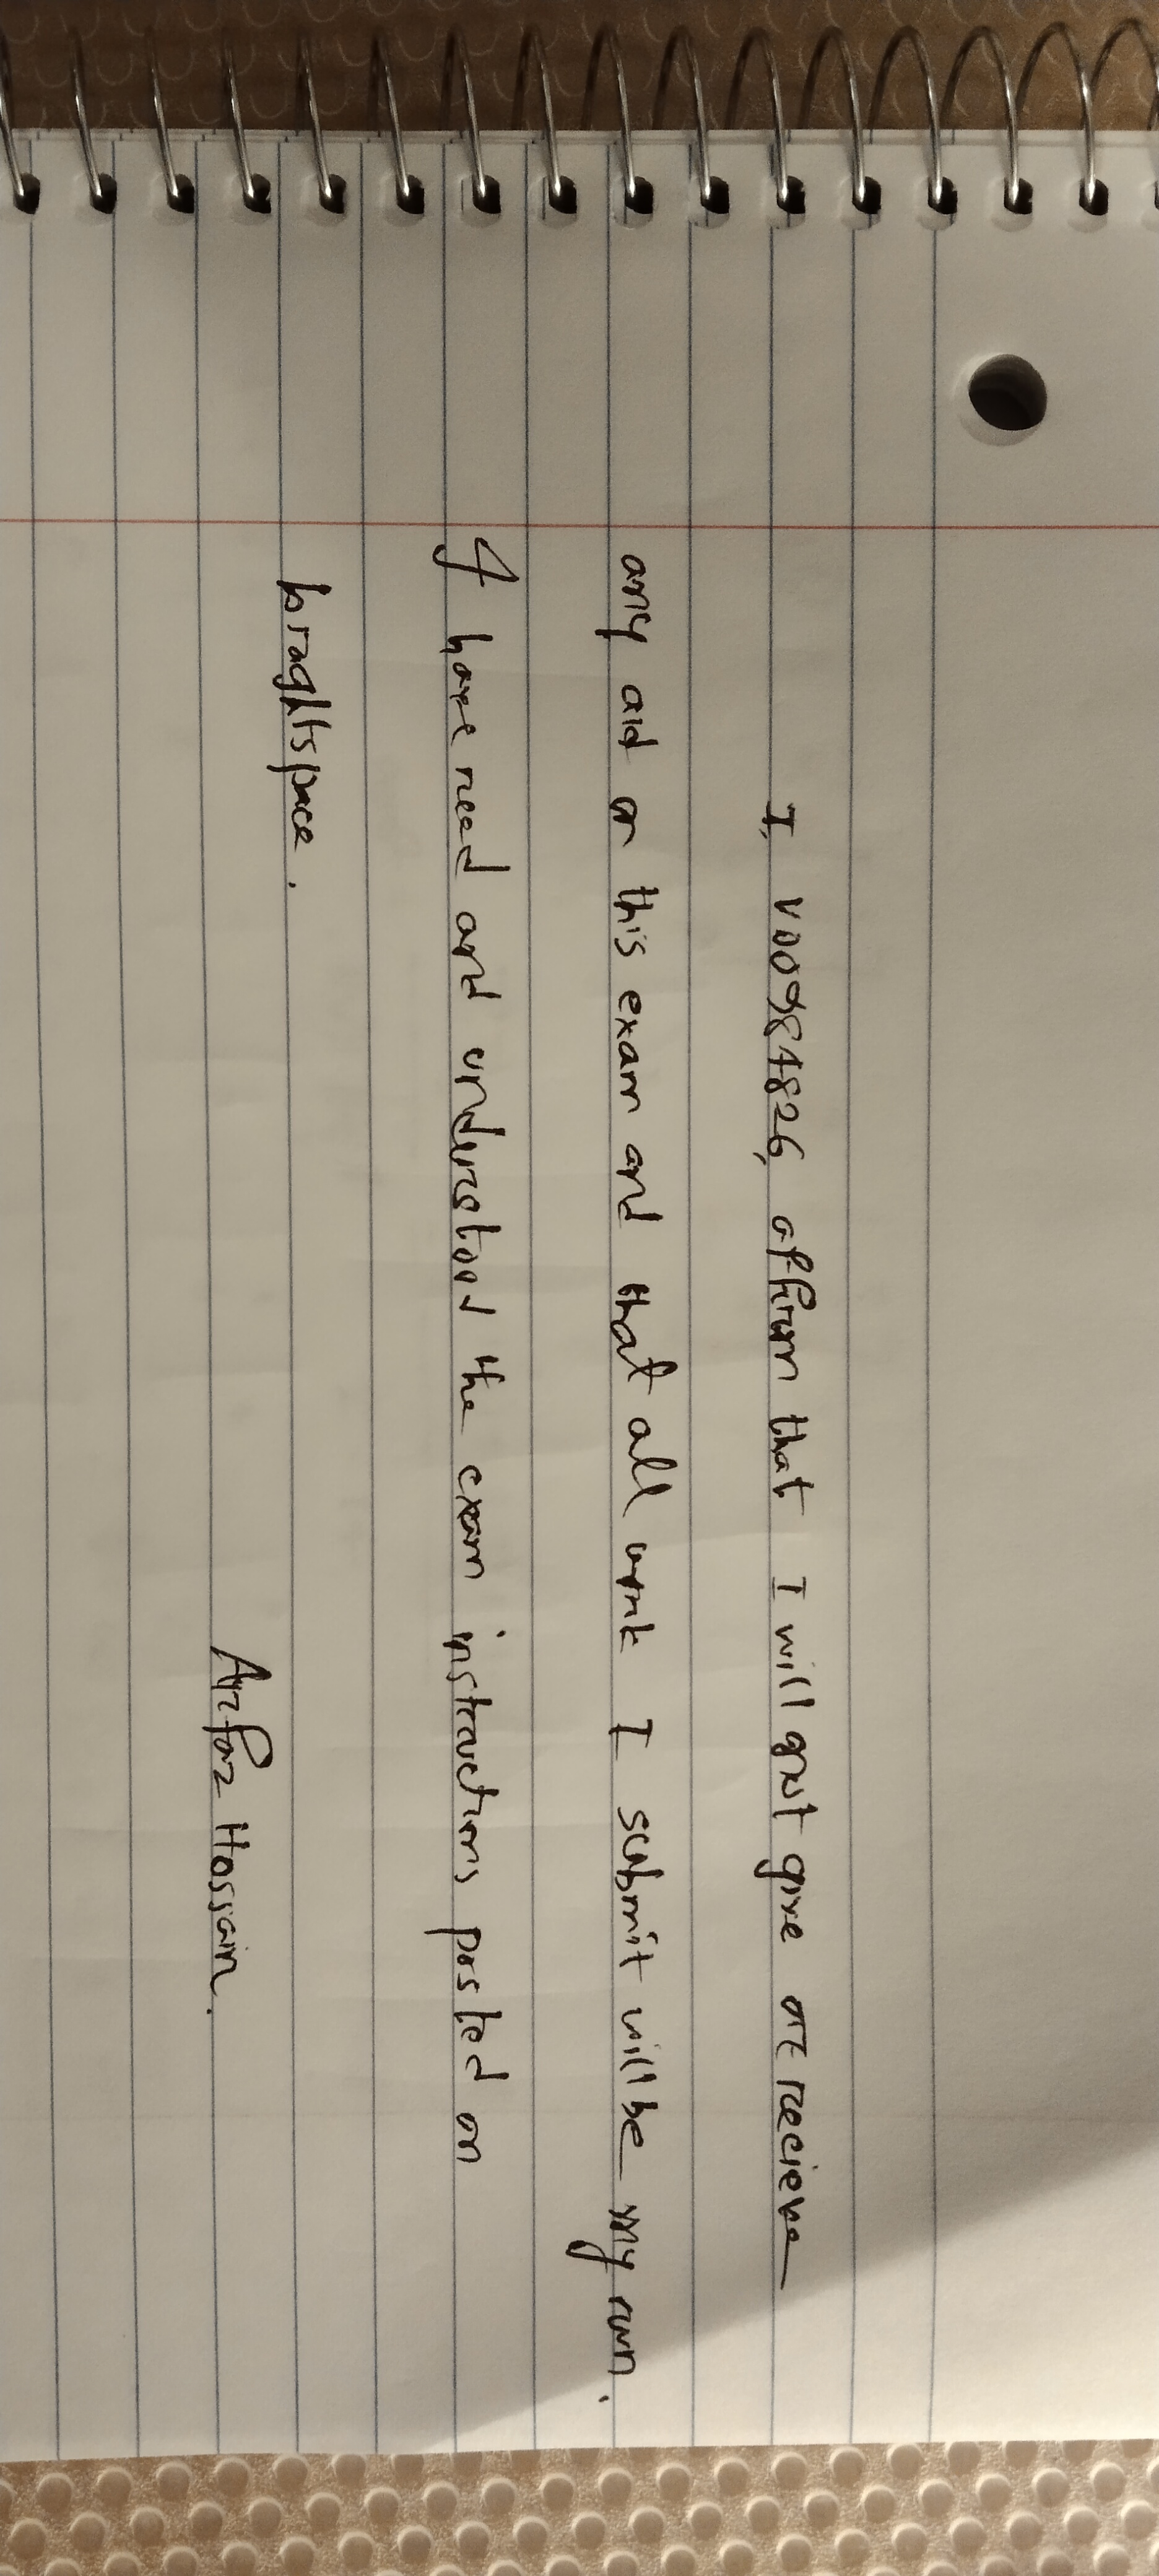 I, V00984826, affirm that I will not give or recieve
any aid on this exam and that all work I submit will be my own.
I have read and understood the exam instructions posted on
braghtspace.
Arfaz Hossain.